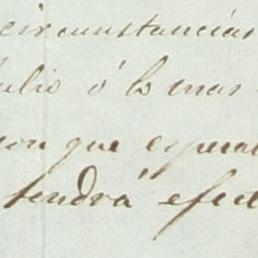 circunstancias
Julio ó lo mas
que espera
tendrá efect